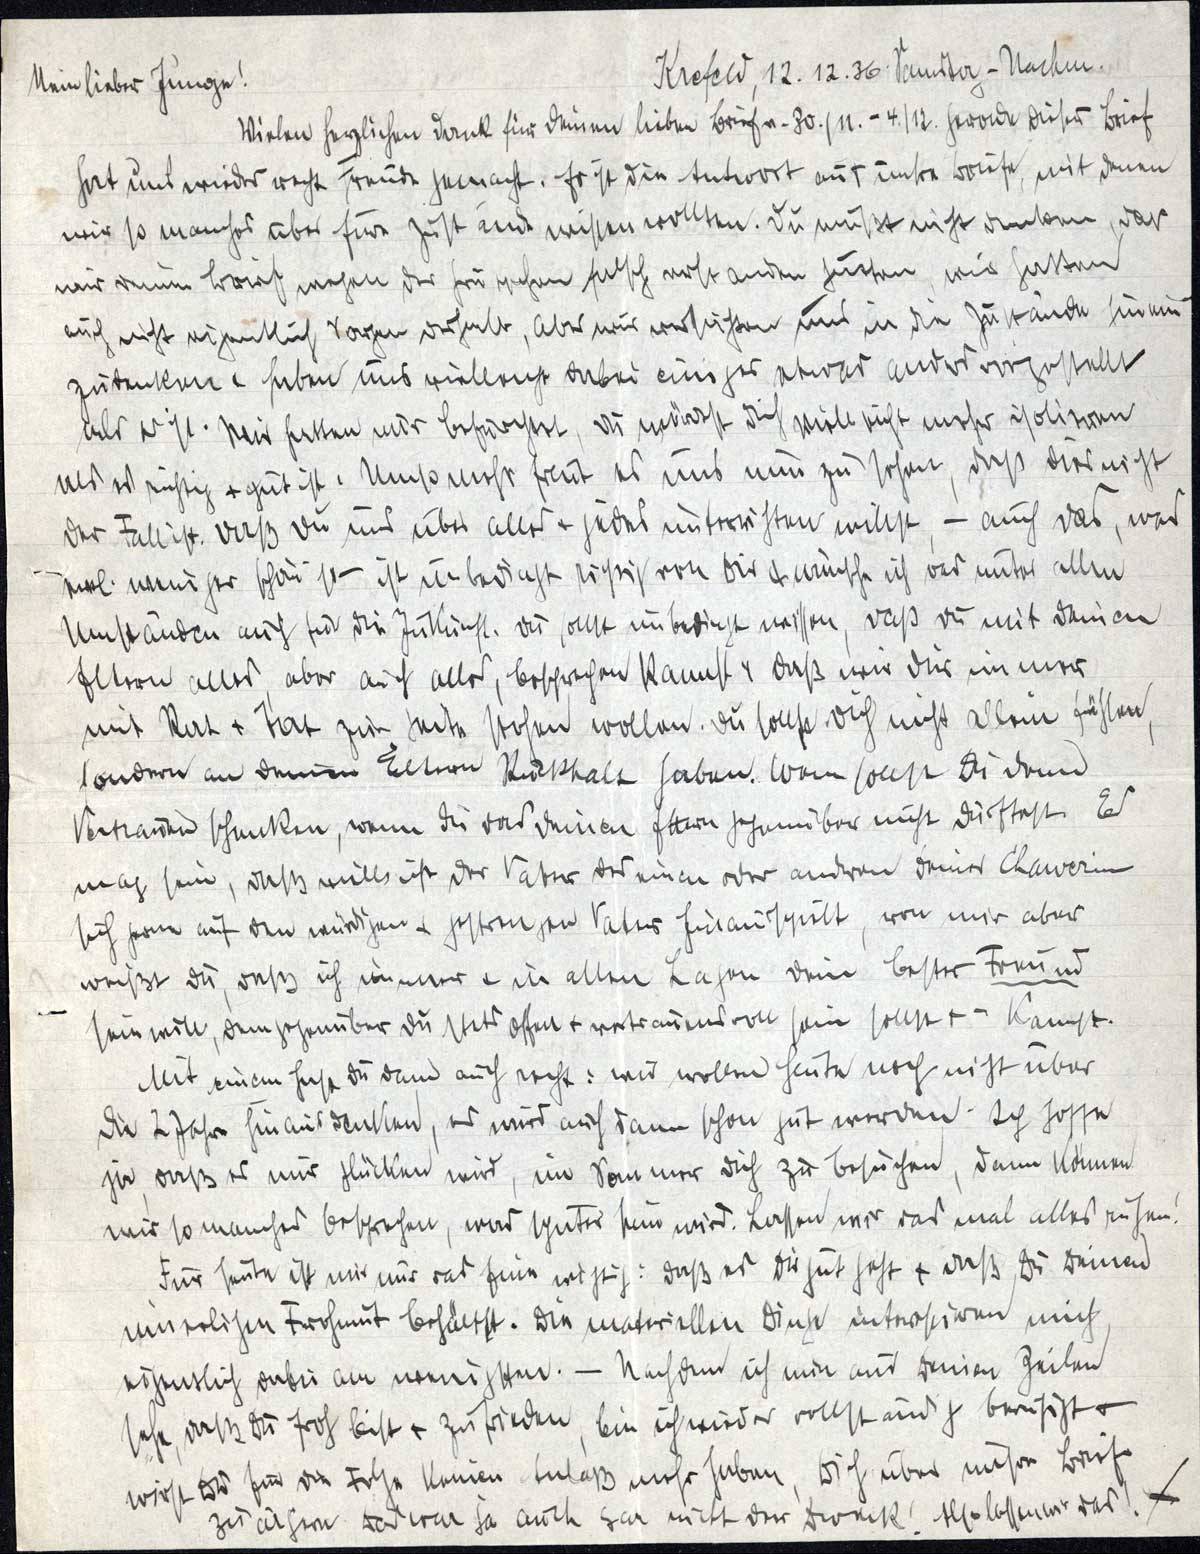 Krefeld, 12.12.36 Samstag-Nachm.
Mein lieber Junge!
Vielen herzlichen Dank für Deinen lieben Brief v. 30./11. - 4./12. Gerade dieser Brief
hat uns wieder recht Freude gemacht. Es ist die Antwort auf unsre Briefe, mit denen
wir so manches über Eure Zustände wissen wollten. Du mußt nicht denken, das
wir Deinen Brief wegen der falsch verstanden hätten, wir hatten
auch nicht eigentlich Sorgen deshalb, aber wir versuchten uns in die Zustände hinein
zudenken & haben uns vielleicht dabei einiges etwas anders vorgestellt
als es ist. Wir hatten nur befürchtet, Du würdest Dich vielleicht mehr isolieren
als es richtig & gut ist. Umso mehr freut es uns nun zu sehen, daß dies nicht
der Fall ist. Daß Du uns über alles & jedes unterrichten willst, - auch das, was
evtl. weniger schön ist - ist unbedingt richtig von Dir & wünsche ich das unter allen
Umständen auch für die Zukunft. Du sollst unbedingt wissen, daß Du mit Deinen
Eltern alles, aber auch alles, besprechen kannst & daß wir Dir immer
mit Rat & Tat zur Seite stehen wollen. Du sollst Dich nicht allein fühlen,
sondern an Deinen Eltern Rückhalt haben. Wem sollst Du denn
Vertrauen schenken, wenn Du das Deinen Eltern gegenüber nicht dürftest. Es
mag sein, daß vielleicht der Vater des einen oder anderen Deiner Chawerim
sich gerne auf den würdigen & gestrengen Vater hinausspielt, von mir aber
weißt Du, daß ich immer & in allen Lagen Dein bester Freund
sein will, demgegenüber Du stets offen & vertrauensvoll sein sollst & - kannst.
Mit einem hast Du dann auch recht: wir wollen heute noch nicht über
die 2 Jahre hinausdenken, es wird auch dann schon gut werden. Ich hoffe
ja, daß es mir glücken wird, im Sommer Dich zu besuchen, dann können
wir so manches besprechen, was später sein wird. Lassen wir das mal alles ruhen!
Für heute ist mir nur das Eine wichtig: daß es Dir gut geht & daß Du Deinen
innerlichen Frohmut behältst. Die materiellen Dinge interessieren mich
eigentlich dabei am wenigsten. - Nachdem ich nun aus Deinen Zeilen
sehe, daß Du froh bist & zufrieden, bin ich wieder vollständig beruhigt &
wirst Du für die Folge keinen Anlaß mehr haben, Dich über unsre Briefe
zu ärgern. Das war ja auch gar nicht der Zweck! Also lassen wir das!